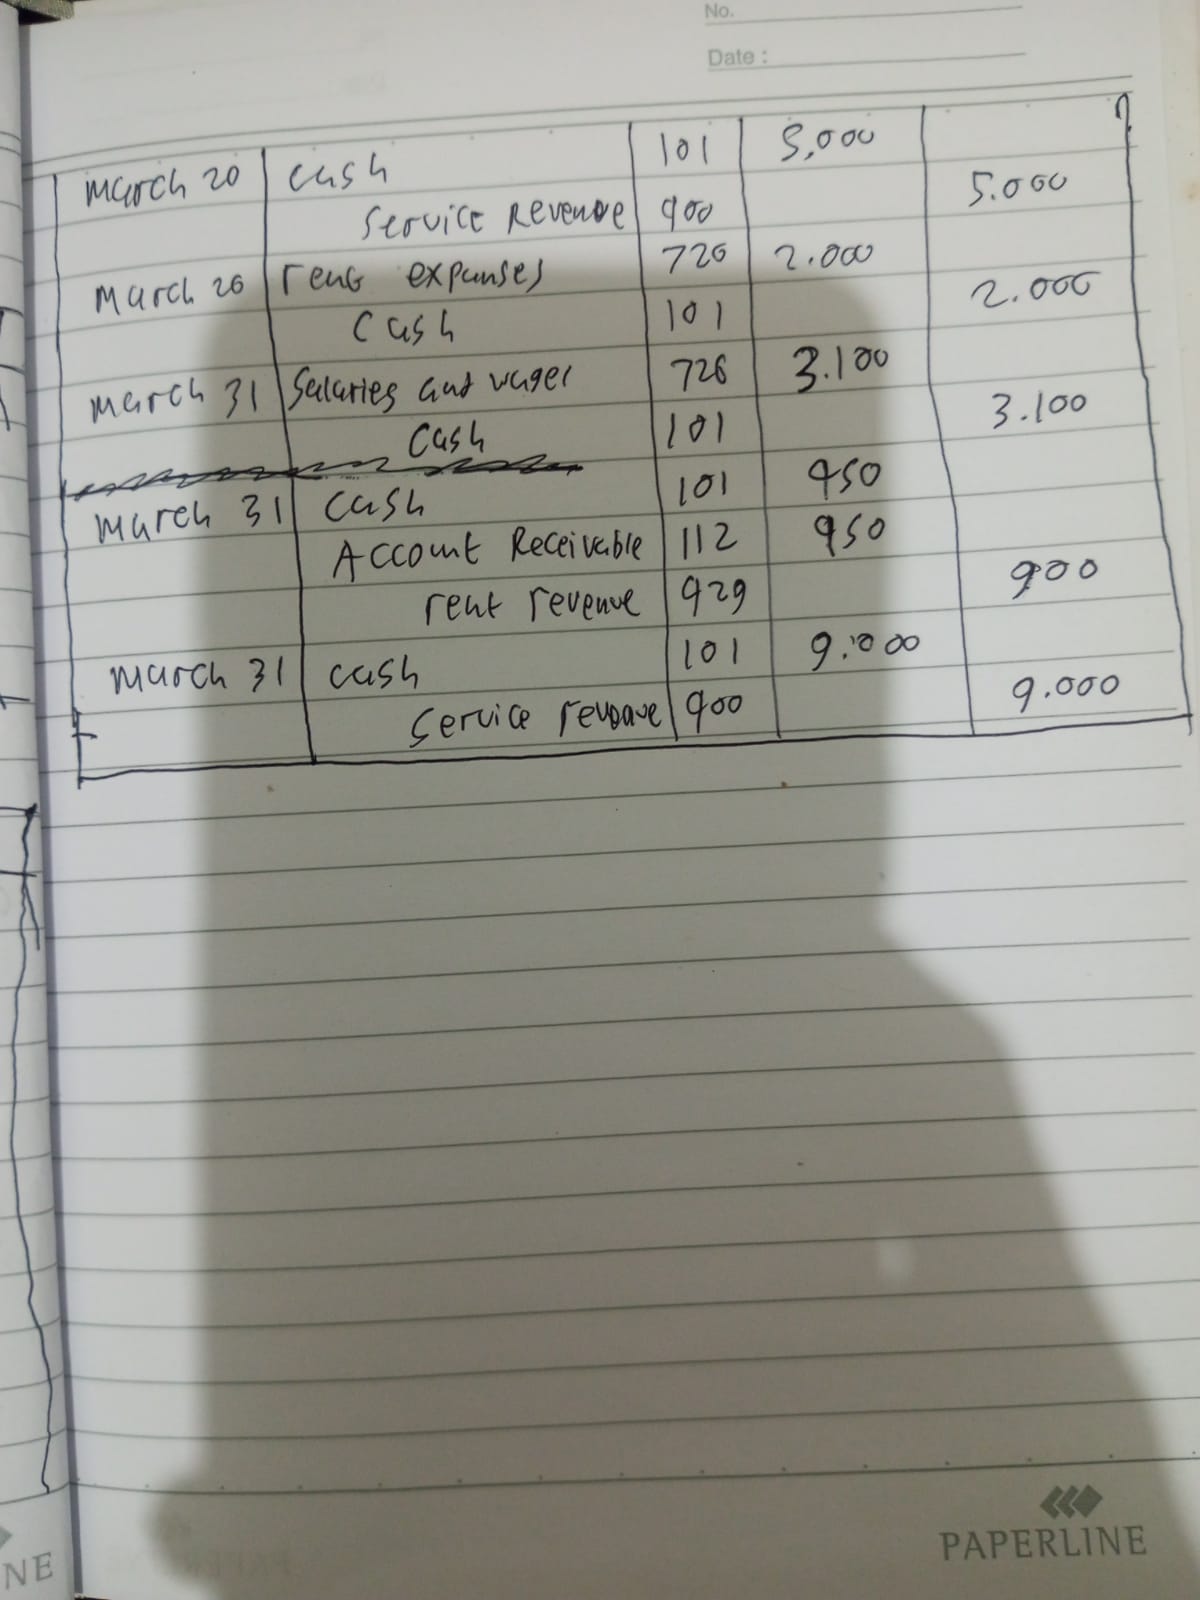 No.
Date :
March 20 cash 101 5,000
Service Revenue 400 5.000
March 20 rent expanses 726 2.000
Cash 101 2.000
March 31 Salaries and wages 726 3.100
Cash 101 3.100
March 31 Cash 101 450
Account Receivable 112 450
rent revenue 429 900
March 31 cash 101 9.000
Service revenue 400 9.000
PAPERLINE
NE